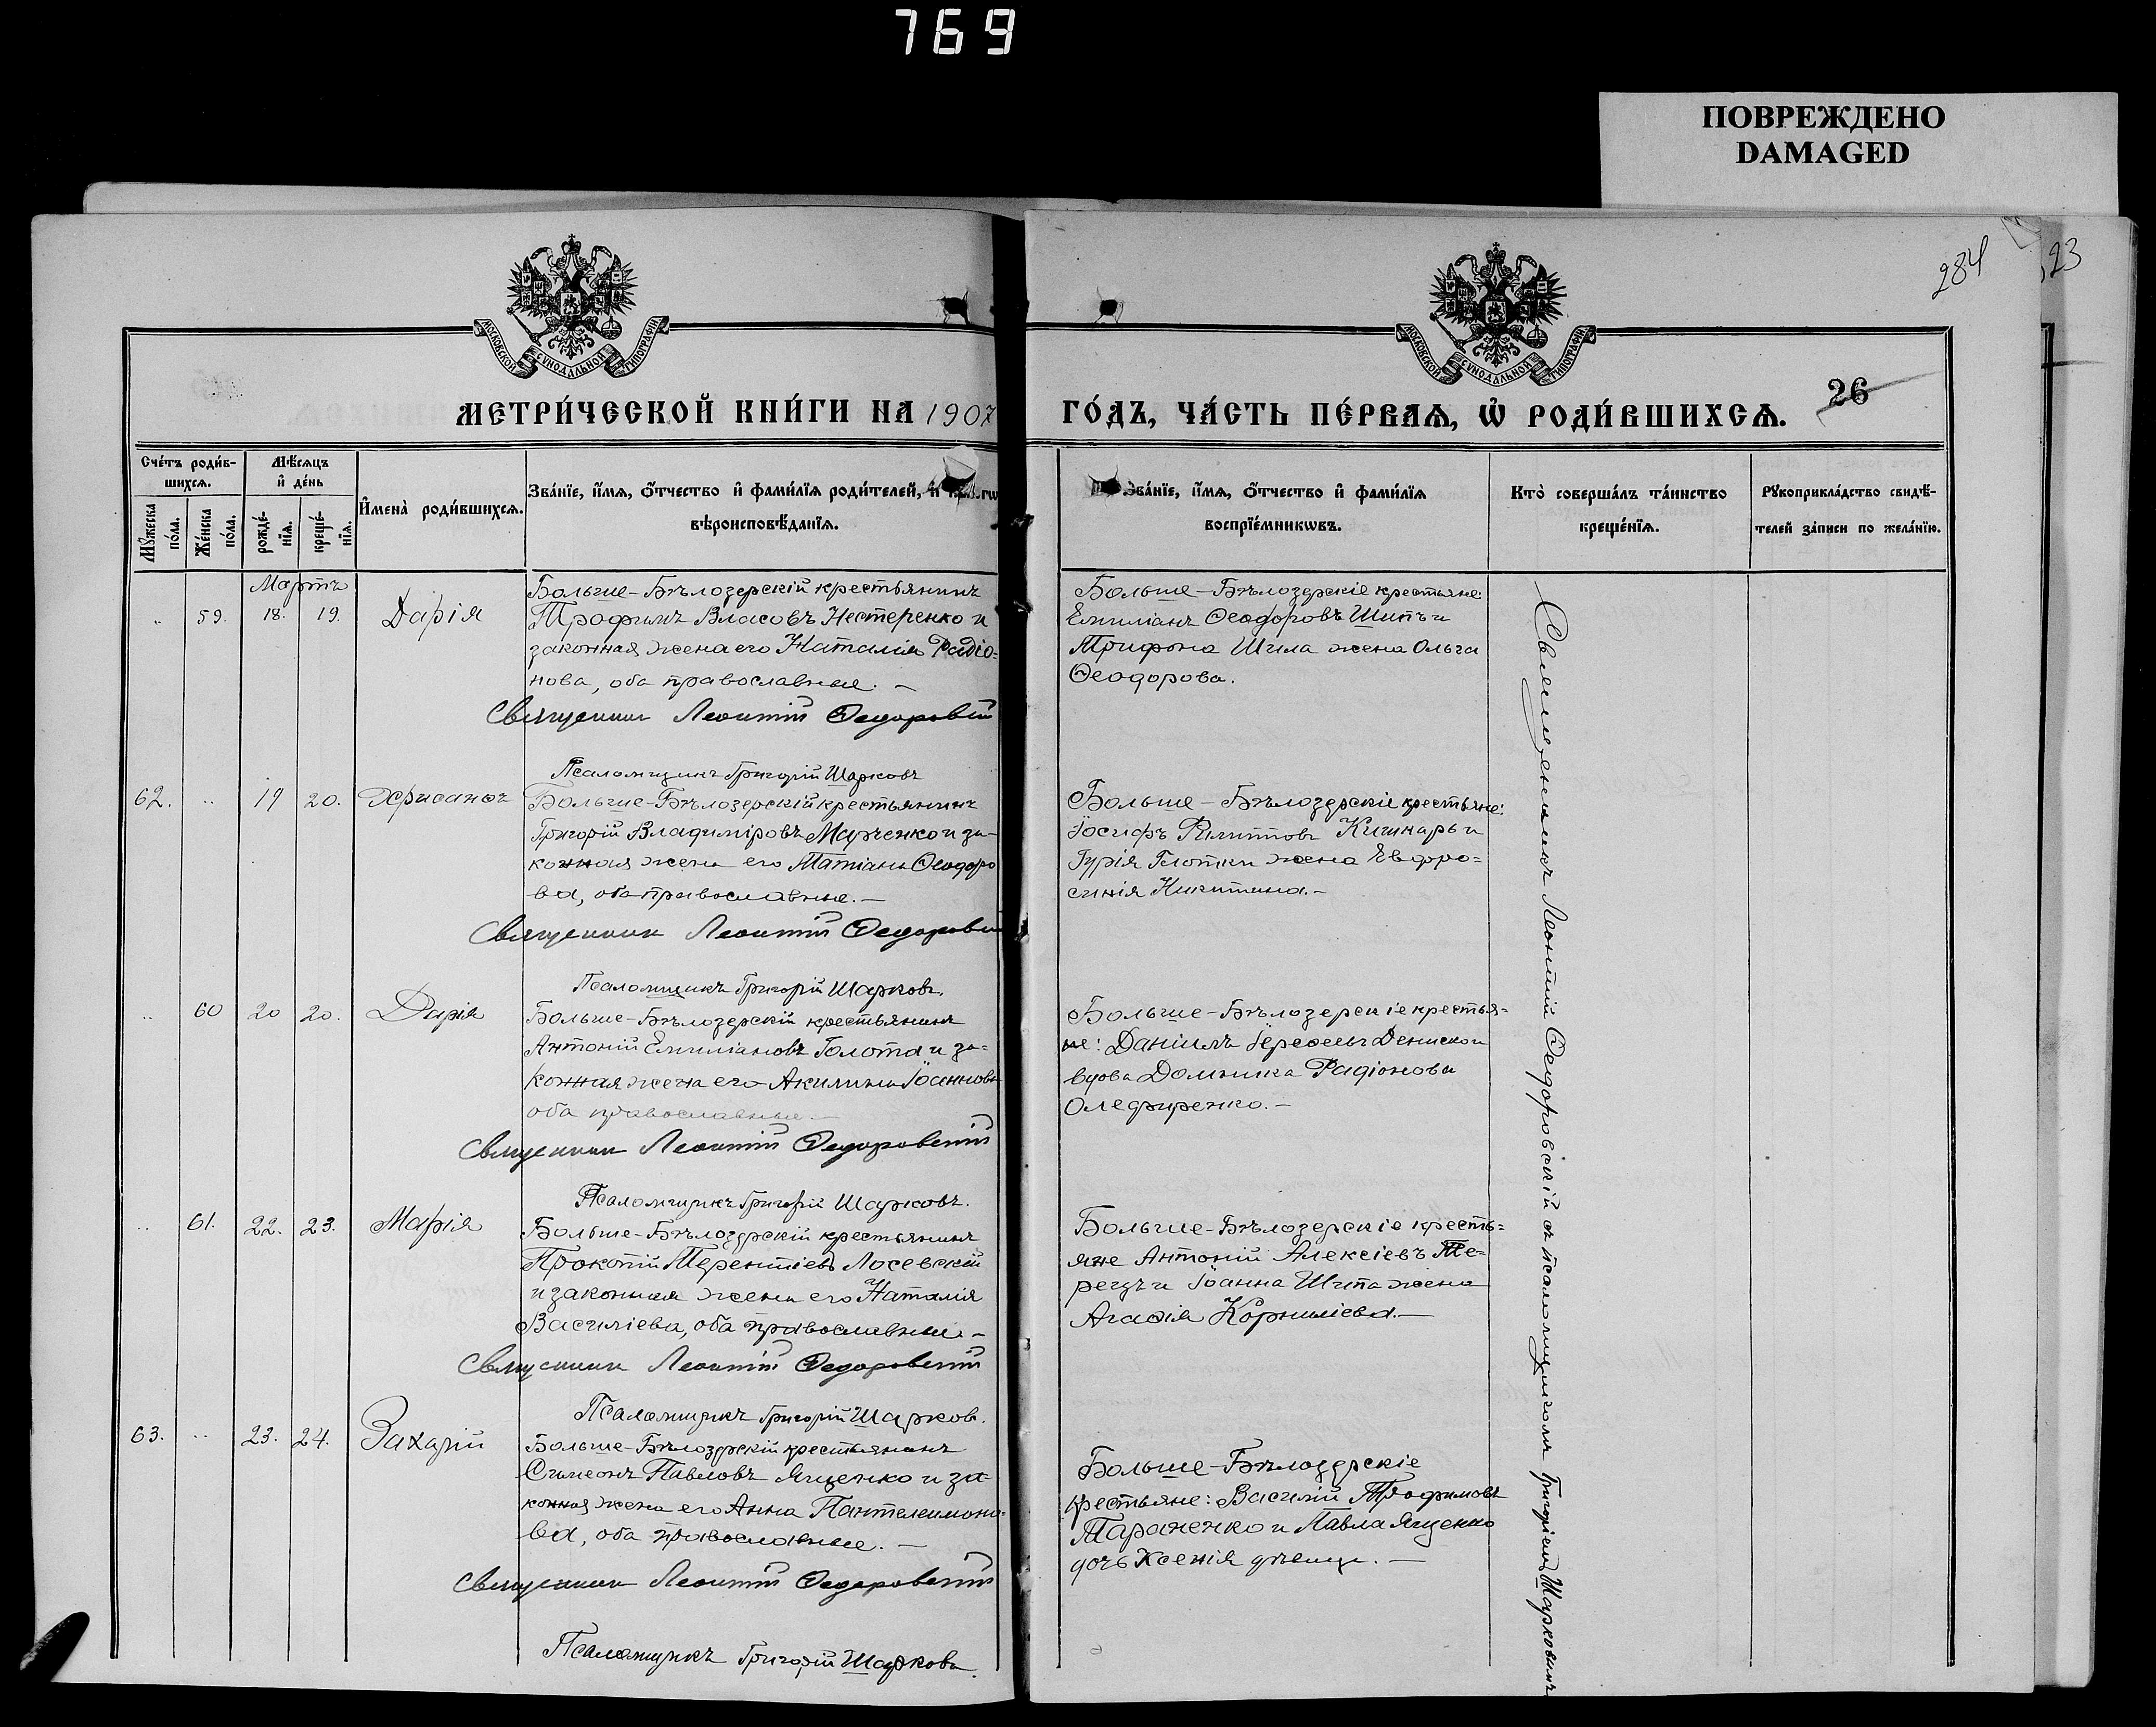 769
ПОВРЕЖДЕНО
DAMAGED
284
23
МОСКОВСКОЙ СѴНОДАЛЬНОЙ ТИПОГРАФІИ
МОСКОВСКОЙ СѴНОДАЛЬНОЙ ТИПОГРАФІИ
МЕТРИ́ЧЕСКОЙ КНИ́ГИ НА 1907
ГО́ДЪ, ЧА́СТЬ ПЕ́РВАѦ, Ѡ҆ РОДИ́ВШИХСѦ.
26
Сче́тъ роди́в-
шихсѧ.
Мꙋ́жеска по́ла.
Же́нска по́ла.
Мѣ́сѧцъ
и҆ де́нь
рожде́-
нїѧ.
креще́-
нїѧ.
И҆мена̀ роди́вшихсѧ.
Зва́нїе, и҆́мѧ, ѻ҆́тчество и҆ фами́лїѧ роди́телей, и҆
вѣроисповѣ́данїѧ.
Зва́нїе, и҆́мѧ, ѻ҆́тчество и҆ фами́лїѧ
воспрїе́мникѡвъ.
Кто̀ соверша́лъ та́инство
креще́нїѧ.
Рꙋкоприкла́дство свидѣ́-
телей за́писи по жела́нїю.
Мартъ
„ 59. 18. 19. Дарія
Больше-Бѣлозерскій крестьянинъ
Трофимъ Власовъ Нестеренко и
законная жена его Наталія Радіо=
нова, оба православные. –
Священник Леонтій Федоровскій
Псаломщикъ Григорій Шарковъ
Больше-Бѣлозерскіе крестьяне:
Емиліанъ Ѳеодоровъ Шипъ и
Трифона Шила жена Ольга
Ѳеодорова.
62. „ 19 20. Хрисанѳъ
Больше-Бѣлозерскій крестьянинъ
Григорій Владиміровъ Марченко и за-
конная жена его Татіана Ѳеодоро
ва, оба православные. –
Священник Леонтій Федоровскій
Псаломщикъ Григорій Шарковъ.
Больше-Бѣлозерскіе крестьяне:
Іосифъ Филиппов Кишкарь и
Гурія Глотки жена Евфро=
синія Никитина. –
„ 60 20 20. Дарія
Больше-Бѣлозерскій крестьянинъ
Антоній Емиліановъ Голота и за=
конная жена его Акилина Іоаннова
оба православные. –
Священник Леонтій Федоровскій
Псаломщикъ Григорій Шарковъ.
Больше-Бѣлозерскіе крестья=
не: Даніилъ Дениско и
вдова Домника Радіонова
Олефиренко. –
„ 61. 22. 23. Марія
Больше-Бѣлозерскій крестьянинъ
Прокопій Терентіевъ Лосевскій
и законная жена его Наталія
Василіева, оба православные. –
Священник Леонтій Федоровскій
Псаломщикъ Григорій Шарковъ.
Больше-Бѣлозерскіе кресть=
яне Антоній Алексіевъ Те=
рецъ и Іоанна Шипа жена
Агаѳія Корниліева. –
63. „ 23. 24. Захарій
Больше-Бѣлозерскій крестьянинъ
Симеонъ Павловъ Яценко и за-
конная жена его Анна Пантелеимоно=
ва, оба православные. –
Священник Леонтій Федоровскій
Псаломщикъ Григорій Шарковъ.
Больше-Бѣлозерскіе
крестьяне: Василій Трофимовъ
Тараненко и Павла Яценко
дочь Ксенія дѣвица. –
Священникъ Леонтій Ѳедоровскій съ псаломщикомъ Григоріемъ Шарковымъ